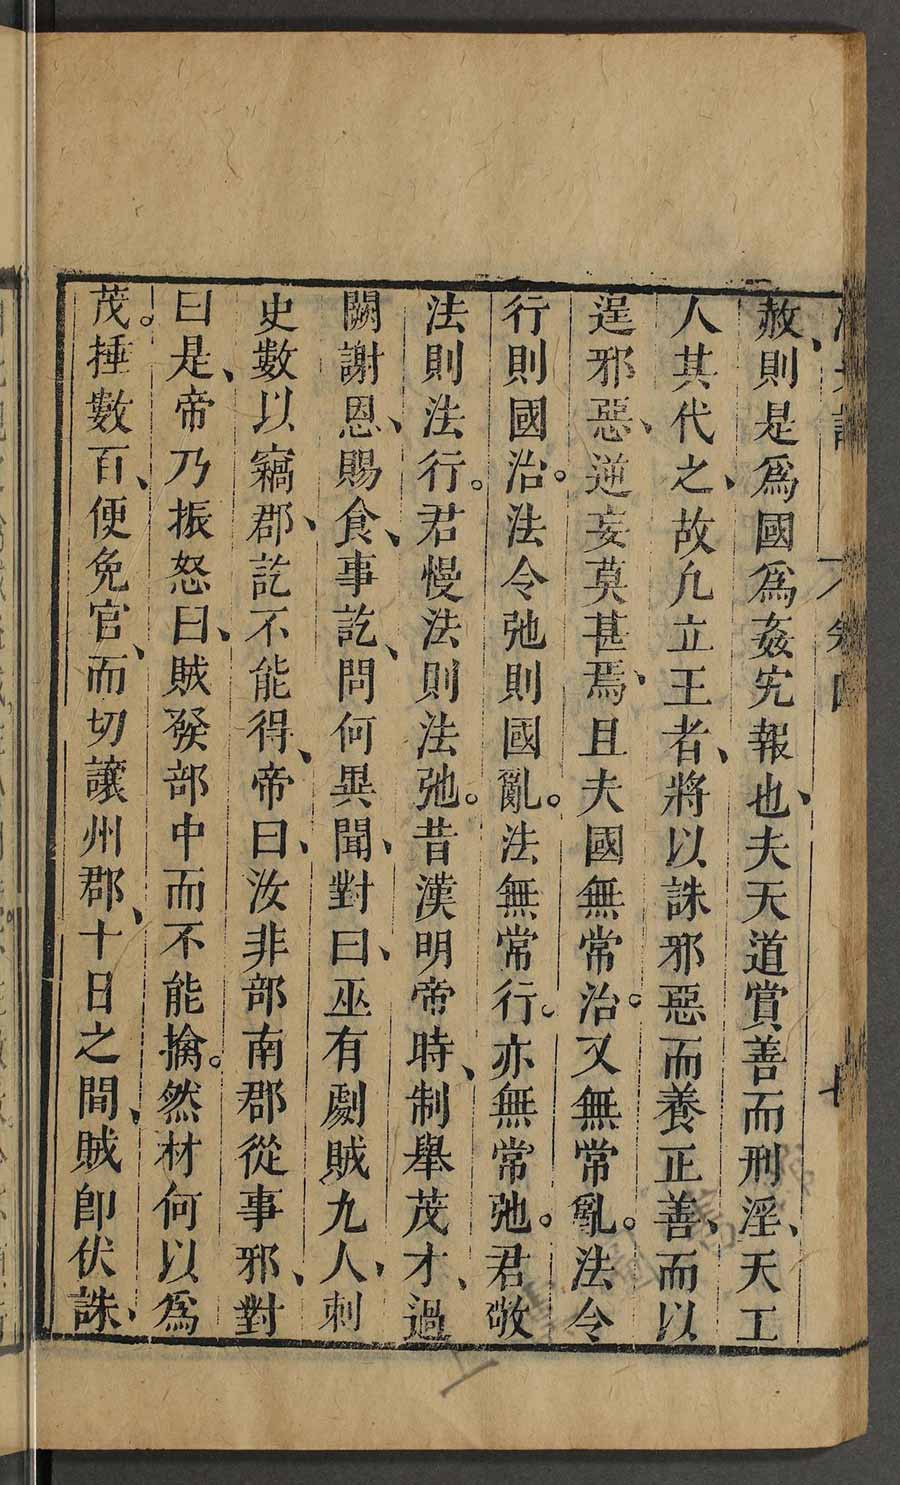 赦、則是爲國爲姦宄報也、夫天道賞善而刑淫、天工
人其代之、故凣立王者、將以誅邪惡而養正善、而以
逞邪惡、逆妄莫甚焉、且夫國無常治。又無常亂。法令
行則國治。法令弛則國亂。法無常行。亦無常弛。君敬
法則法行。君慢法則法弛。昔漢明帝時、制舉茂才、過
闕謝恩、賜食、事訖、問何異聞、對曰、巫有劇賊九人、刺
史數以竊郡、訖不能得、帝曰、汝非部南郡從事邪、對
曰是、帝乃振怒曰、賊發部中而不能擒。然材何以爲
茂。捶數百、便免官、而切讓州郡、十日之間、賊卽伏誅、